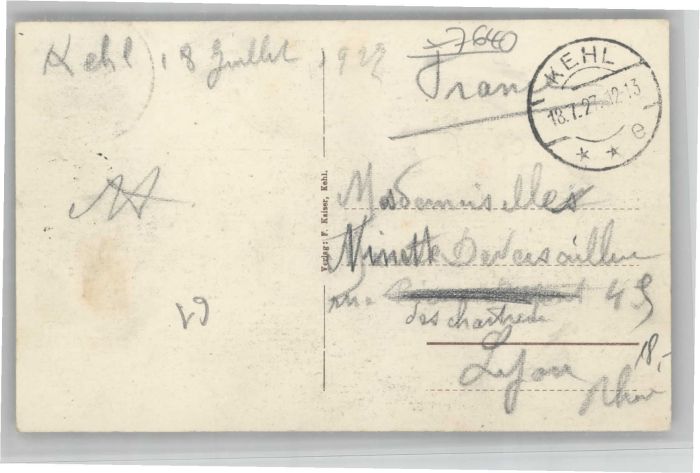 Kehl, 18 Juillet 1927
7640
France
KEHL
18.7.27. 12-13
* * e
Verlag: F. Kaiser, Kehl.
Mademoiselle
Ninette
rue 45
des chartreux
Lyon
Rhône
18,-